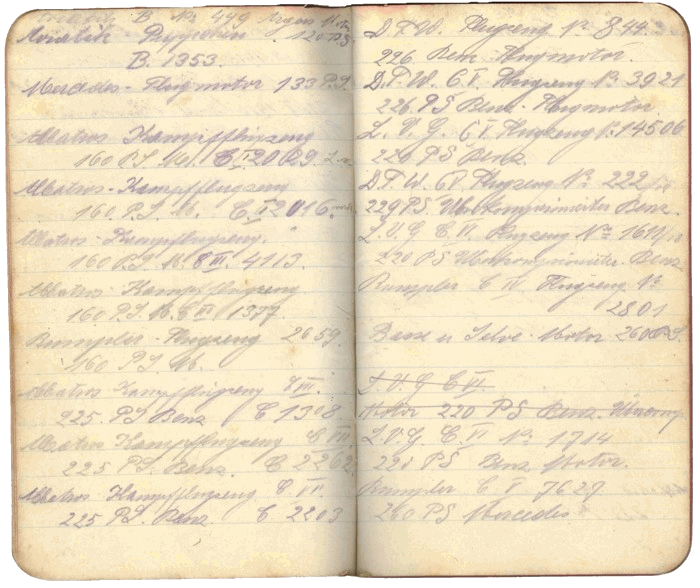 B No 449 Argus Mot.
Aviatik 120 P.S.
B. 1353.
Mercedes - Flugmotor 133 P.S.
Albatros Kampfflugzeug
160 P.S. M. C I 2029
Albatros - Kampfflugzeug
160 P.S. M. C I 2016
Albatros - Kampfflugzeug.
160 P.S. M. C III. 4113.
Albatros - Kampfflugzeug
160 P.S. M. C III 1377.
Rumpler - Flugzeug 2659.
160 P.S. M.
Albatros Kampfflugzeug
225. PS Benz C 1308.
Albatros Kampfflugzeug C VII
225 P.S. Benz. C 2262
Albatros Kampfflugzeug C
225 P.S. Benz C 2203
D.F.W. Flugzeug No 844.
226 Benz - Flugmotor.
D.F.W. C V. Flugzeug No 3921
226 PS Benz - Flugmotor
L.V.G. C V. Flugzeug No 14506
226 PS Benz
D.F.W. C V Flugzeug No 222
229 PS. Überkomprimierter Benz.
L.V.G C VI. Flugzeug No 1611
220 PS Überkomprimierter Benz
Rumpler C IV Flugzeug No
2801
Basse u Selve - Motor 260 P.S.
L.V.G C VI.
Motor 220 PS Benz.
L.V.G. C VI No 1714
220 PS Benz Motor.
Rumpler C 7627
260 PS Mercedes